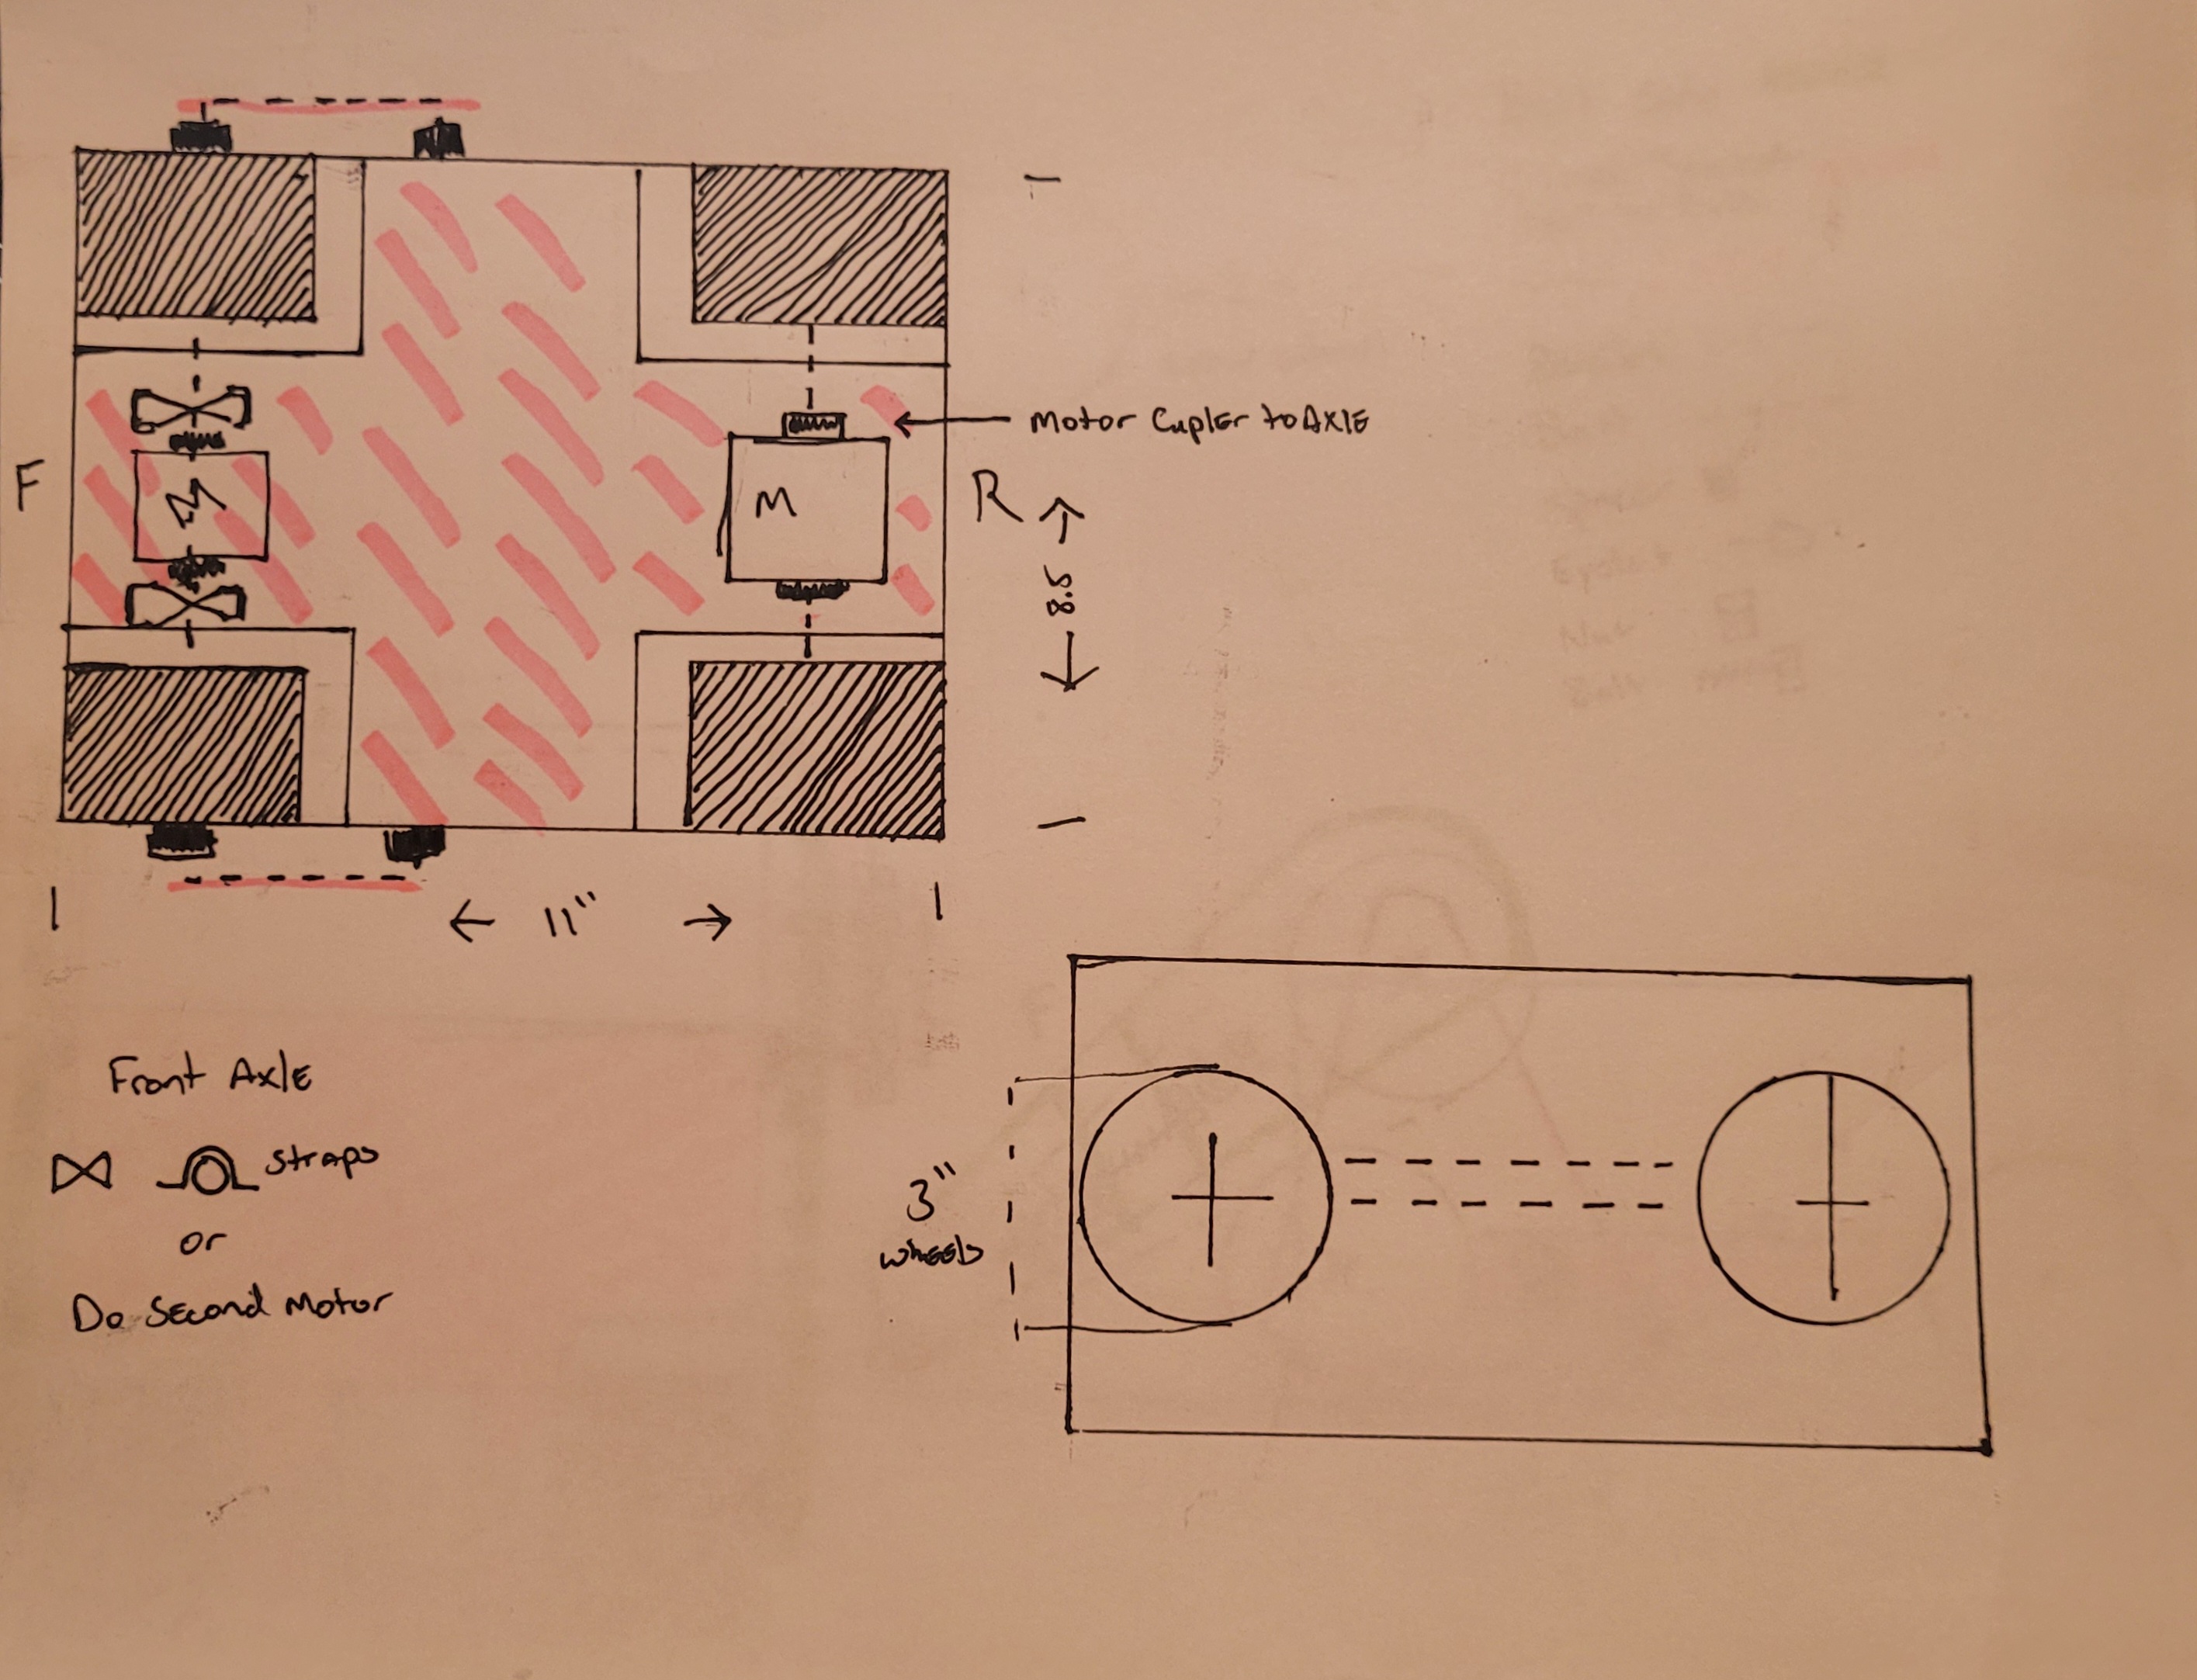 F
M
M
R
Motor Cupler to AxlE
8.5
11"
Front AxlE
straps
or
Do SEcond Motor
3"
whEEls